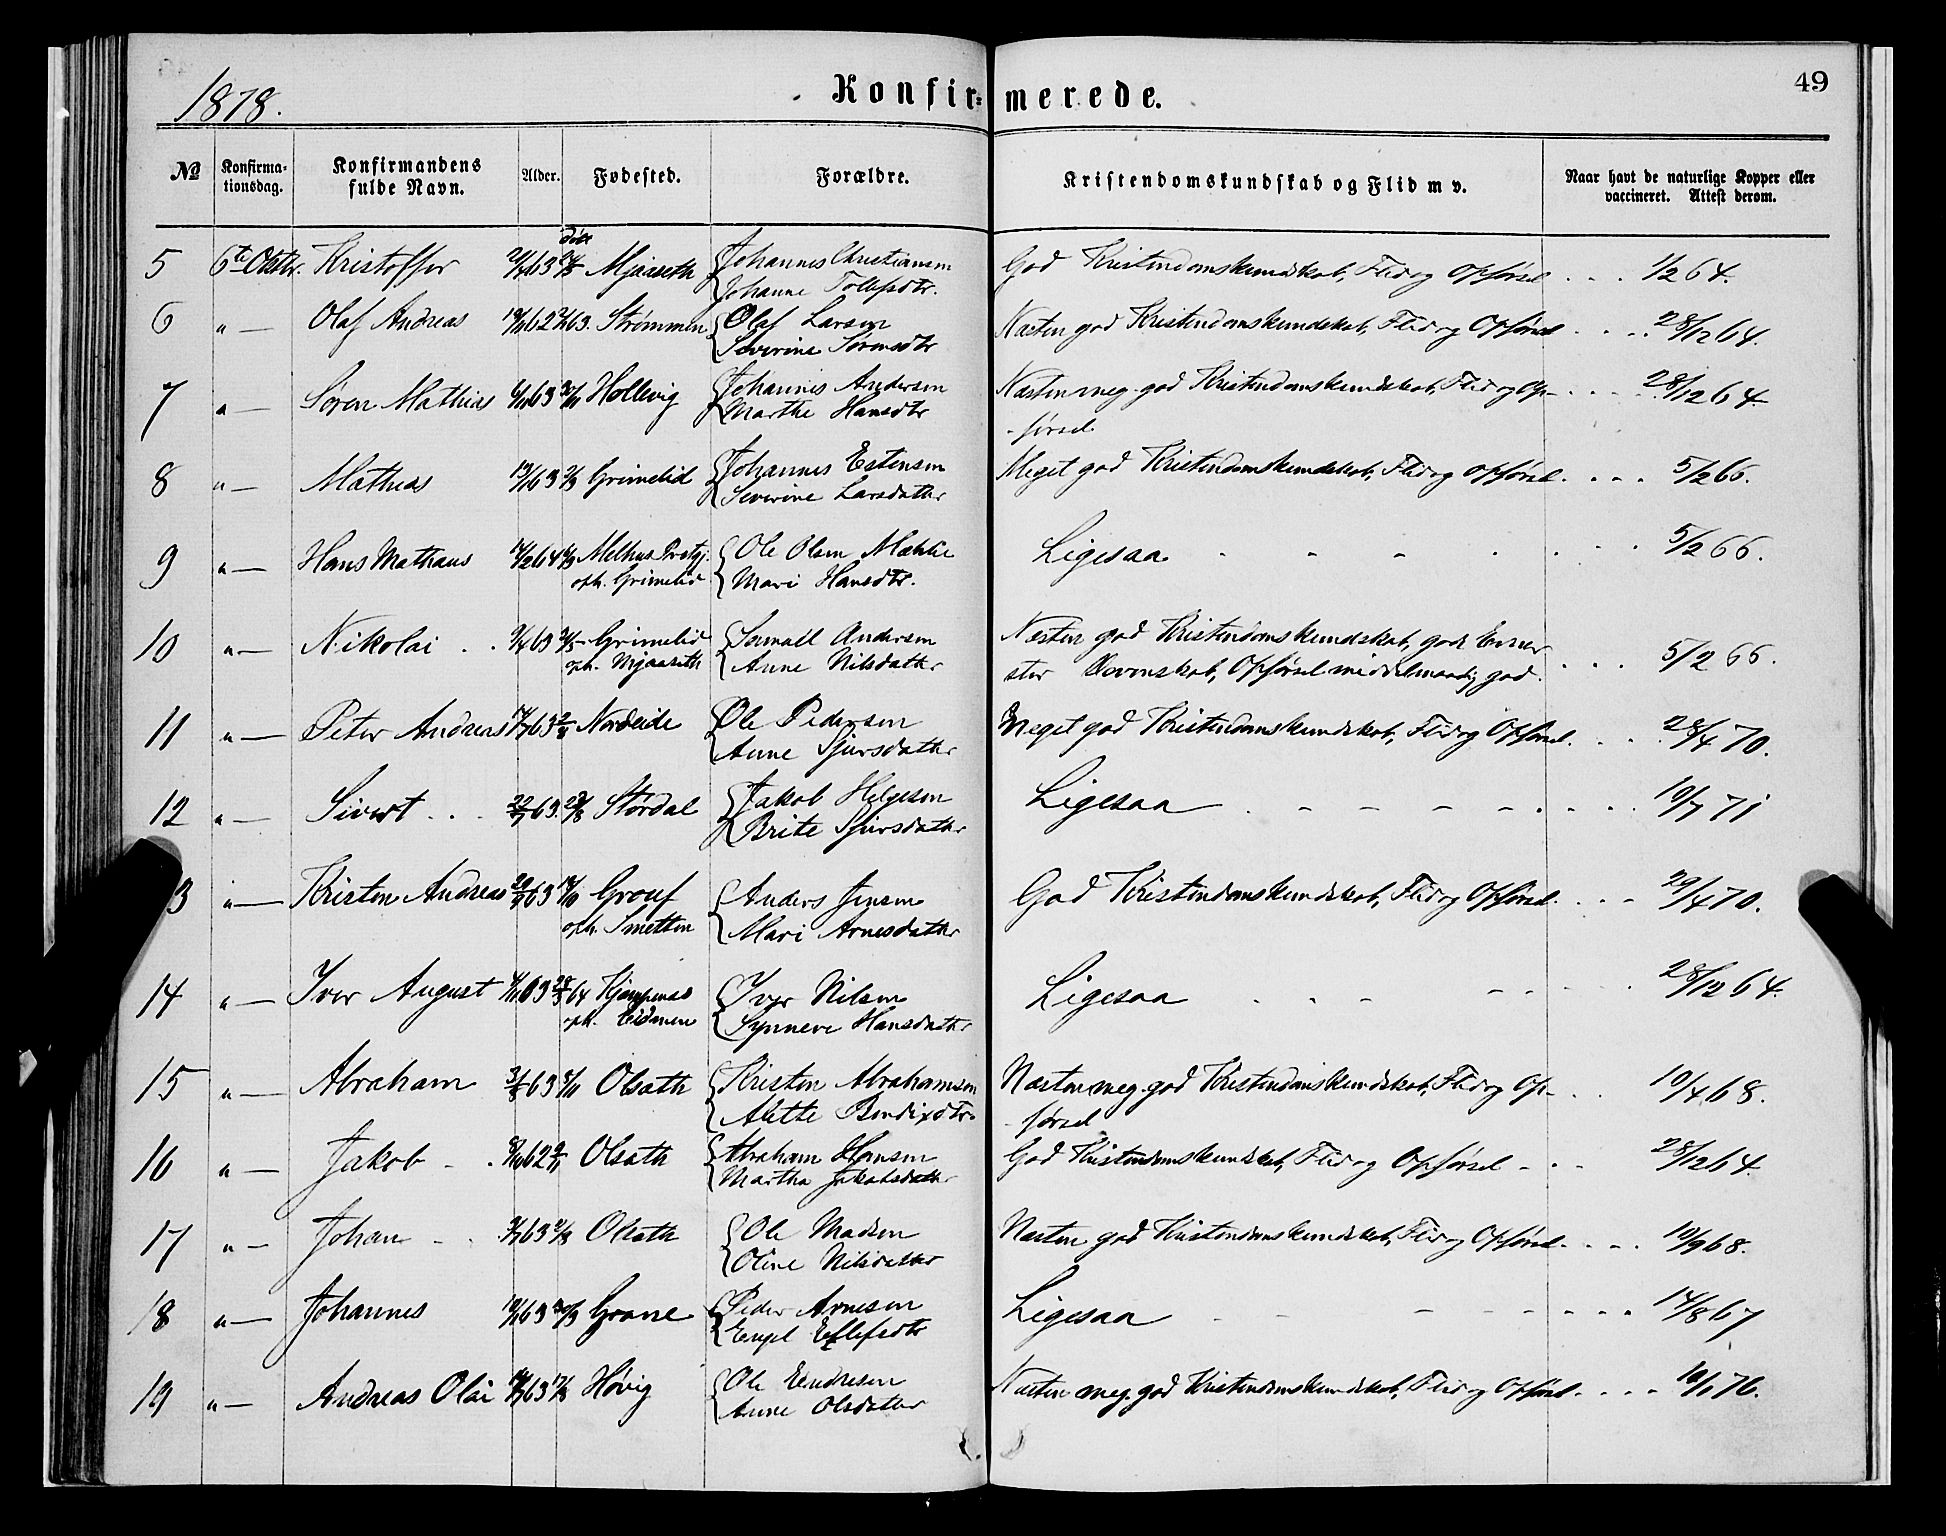 1878.
Konfir=merede.
49
№ Konfirma-tionsdag. Konfirmandens fulde Navn. Alder. Fødested. Forældre. Kristendomskundskab og Flid m v. Naar havt de naturlige Kopper eller vaccineret. Attest derom.
5 6te Oktbr. Kristoffer døbt Mjaaseth Johannes Christiansen
Johanne Tollefsdtr. God Kristendomskundskab, Flid og Opførsel 1/2 64.
6 "— Olaf Andreas Strømmen Olaf Larsen
Severine Sørensdtr Næsten god Kristendomskundskab, Flid og Opførsel 28/12 64.
7 "— Søren Mathias Hollevig Johannes Andersen
Marthe Hansdtr Næsten meg. god Kristendomskundskab, Flid og Op-
-førsel 28/12 64.
8 "— Mathias Grimelid Johannes Estensen
Severine Larsdatter Meget god Kristendomskundskab, Flid og Opførsel 5/2 66.
9 "— Hans Mathæus Melhus Prstgj.
oph. Grimelid Ole Olsen
Mari Hansdtr. Ligesaa 5/2 66.
10 "— Nikolai Grimelid
oph. Mjaaseth Samuel Andersen
Anne Nilsdatter Næsten god Kristendomskundskab, gode Evner
Opførsel middelmaadig god. 5/2 66.
11 "— Peter Andreas Nordeide Ole Pedersen
Anne Sjursdatter Meget god Kristendomskundskab, Flid og Opførsel. 28/4 70.
12 "— Sivert Størdal Jakob Helgesen
Brite Sjursdatter Ligesaa 19/7 71
13 "— Kristen Andreas
oph. Smetten Anders Jensen
Mari Arnesdatter God Kristendomskundskab, Flid og Opførsel. 29/4 70.
14 "— Iver August
oph. Iver Nilsen
Synneve Hansdatter Ligesaa 28/12 64.
15 "— Abraham Olsath Kristen Abrahamsen
Alette Bendixdtr. Næsten meg. god Kristendomskundskab, Flid og Op-
-førsel 10/4 68.
16 "— Jakob Olsath Abraham Hansen
Martha Jakobsdatter God Kristendomskundskab, Flid og Opførsel 28/12 64.
17 "— Johan Olsath Ole Madsen
Oline Nilsdatter Næsten god Kristendomskundskab, Flid og Opførsel. 10/9 68.
18 "— Johannes Grane Peder Arnesen
Engel Ligesaa 14/8 67
19 "— Andreas Olai Høvig Ole Endresen
Anne Olsdatter Næsten meg. god Kristendomskundskab, Flid og Opførsel